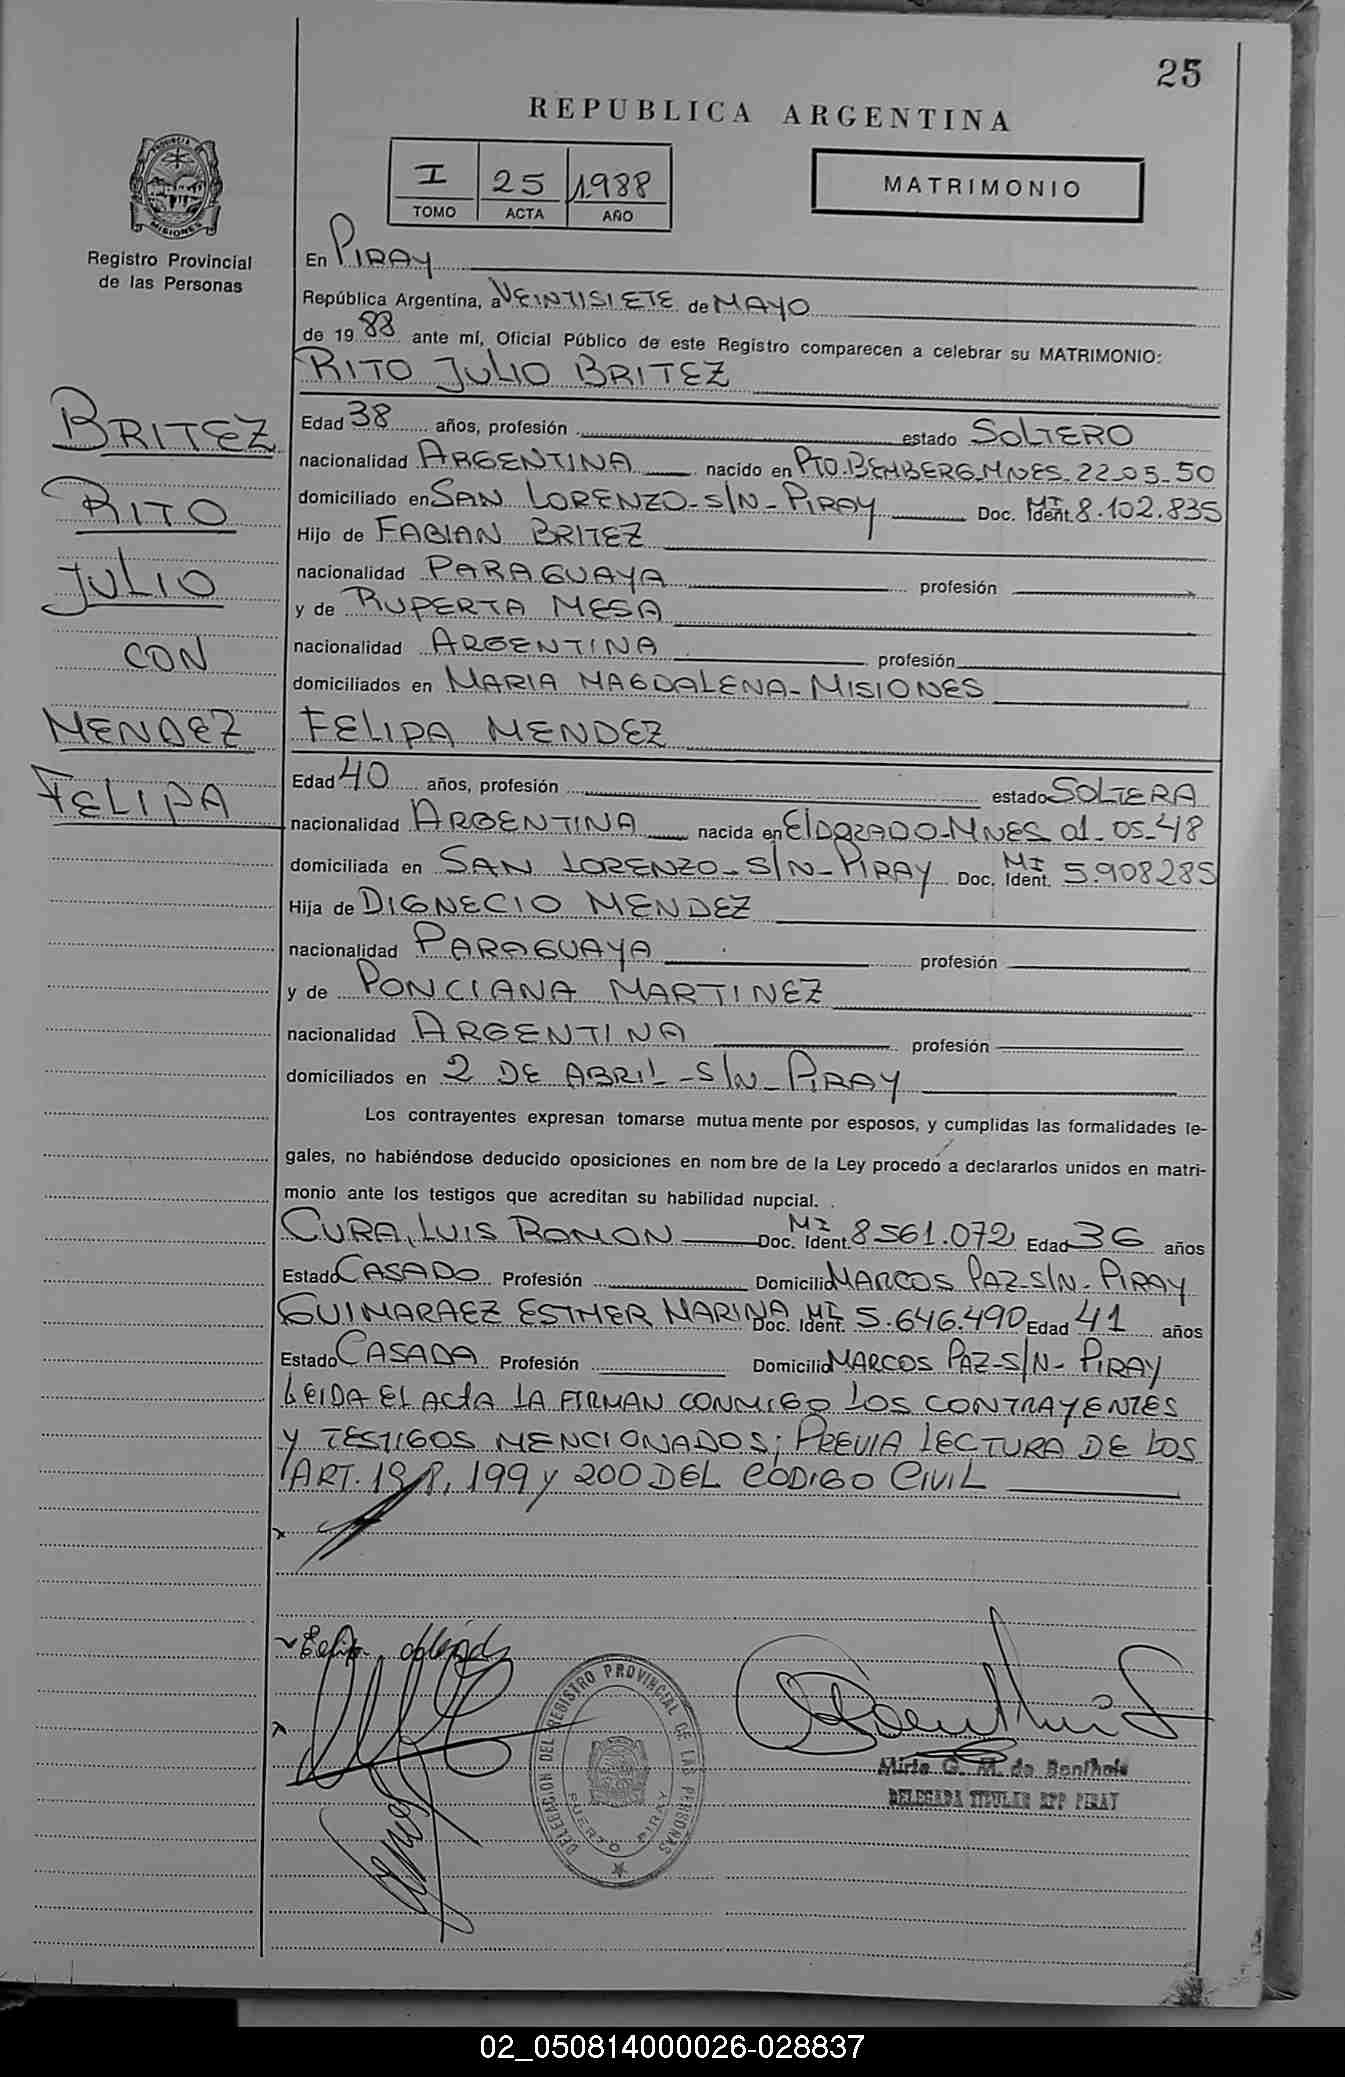 25
REPUBLICA ARGENTINA
I 25 1988
TOMO ACTA AÑO
MATRIMONIO
PROVINCIA DE
MISIONES
Registro Provincial
de las Personas
En PIRAY
República Argentina, a VEINTISIETE de MAYO
de 1988 ante mí, Oficial Público de este Registro comparecen a celebrar su MATRIMONIO:
RITO JULIO BRITEZ
BRITEZ
RITO
JULIO
CON
MENDEZ
FELIPA
Edad 38 años, profesión estado SOLTERO
nacionalidad ARGENTINA nacido en PTO.BEMBERG-MNES-22-05-50
domiciliado en SAN LORENZO-S/N-PIRAY Doc. Ident. MI 8.102.835
Hijo de FABIAN BRITEZ
nacionalidad PARAGUAYA profesión
y de RUPERTA MESA
nacionalidad ARGENTINA profesión
domiciliados en MARIA MAGDALENA-MISIONES
FELIPA MENDEZ
Edad 40 años, profesión estado SOLTERA
nacionalidad ARGENTINA nacida en ElDORADO-MNES 01-05-48
domiciliada en SAN LORENZO-S/N-PIRAY Doc. Ident. MI 5.908285
Hija de DIGNECIO MENDEZ
nacionalidad PARAGUAYA profesión
y de PONCIANA MARTINEZ
nacionalidad ARGENTINA profesión
domiciliados en 2 DE ABRIL-S/N-PIRAY
Los contrayentes expresan tomarse mutuamente por esposos, y cumplidas las formalidades le-
gales, no habiéndose deducido oposiciones en nombre de la Ley procedo a declararlos unidos en matri-
monio ante los testigos que acreditan su habilidad nupcial.
CURA, LUIS RAMON Doc. Ident. MI 8561.072 Edad 36 años
Estado CASADO Profesión Domicilio MARCOS PAZ-S/N-PIRAY
GUIMARAEZ ESTHER MARINA Doc. Ident. MI 5.646.490 Edad 41 años
Estado CASADA Profesión Domicilio MARCOS PAZ-S/N-PIRAY
LEIDA El ActA LA FIRMAN CONMIGO LOS CONTRAYENTES
Y TESTIGOS MENCIONADOS; PREVIA LECTURA DE LOS
ART. 198, 199 y 200 DEL CODIGO CIVIL
DELEGACION DEL REGISTRO PROVINCIAL DE LAS PERSONAS
PUERTO PIRAY
Mirta G. M. de
DELEGADA TITULAR RPP PIRAY
02_050814000026-028837